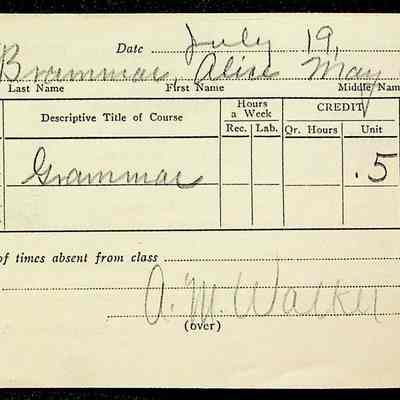 Date July 19,
Brammar, Alice May
Last Name First Name Middle Nam
Descriptive Title of Course Hours a Week CREDIT
Rec. Lab. Qr. Hours Unit
Grammar .5
of times absent from class
A. M. Walker
(over)